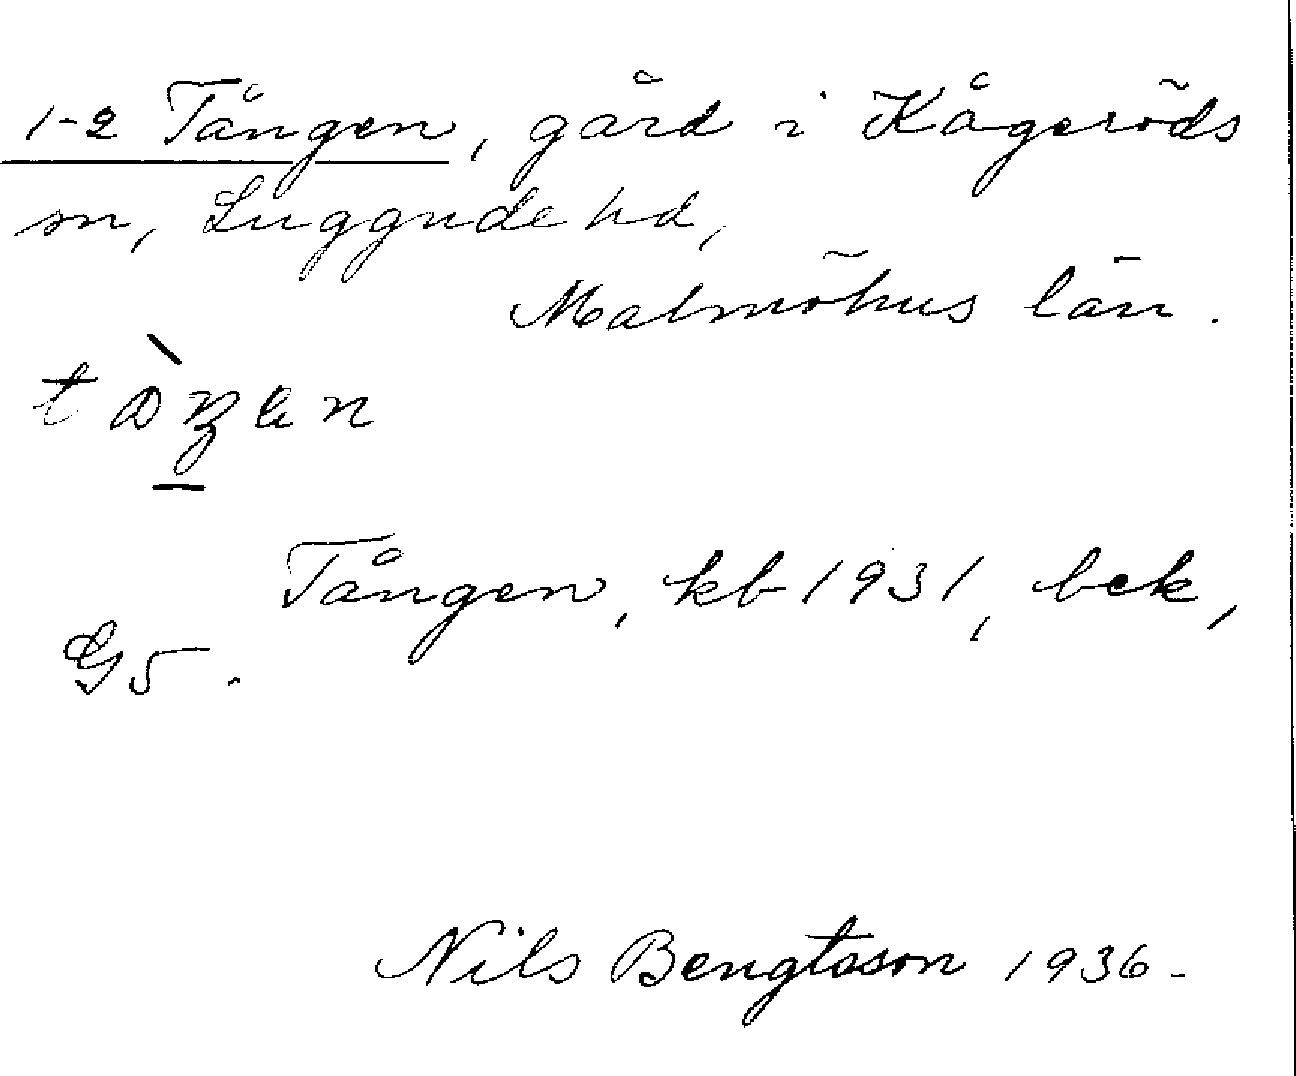 1-2 Tången, gård i Kågeröds
sn, Luggude hd,
Malmöhus län.
Tången, kb 1931, bek,
G5.
Nils Bengtsson 1936-